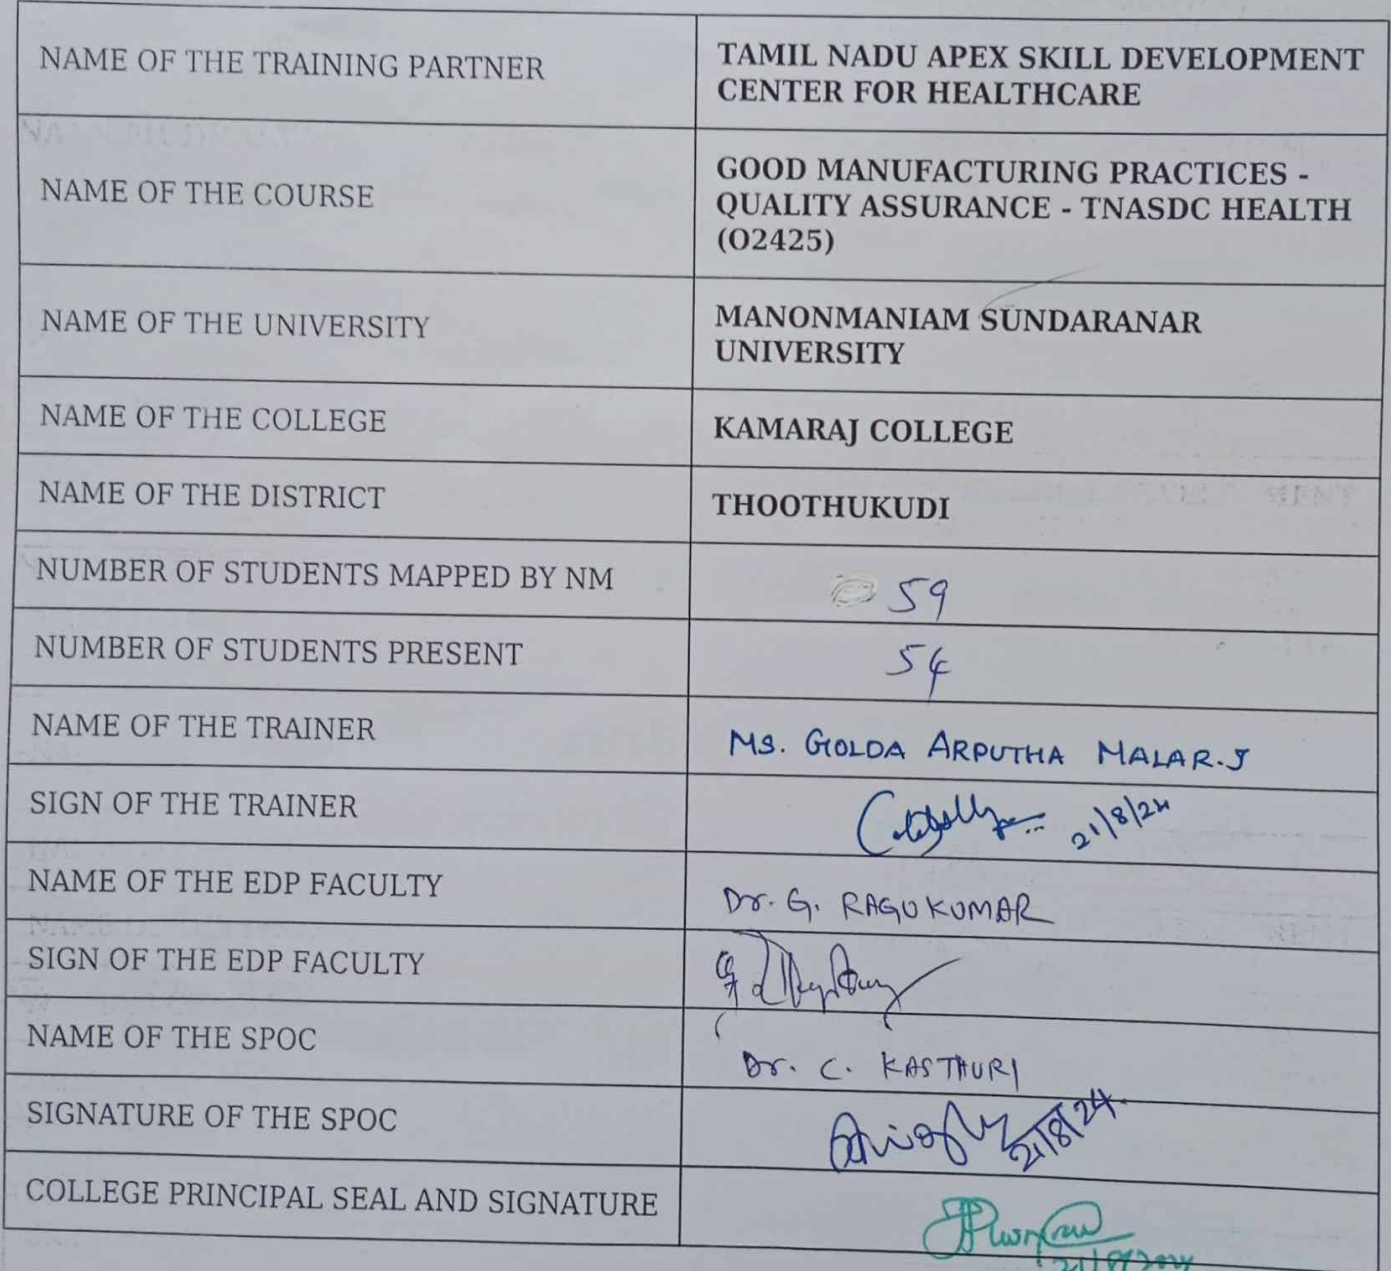 NAME OF THE TRAINING PARTNER
TAMIL NADU APEX SKILL DEVELOPMENT
CENTER FOR HEALTHCARE
NAME OF THE COURSE
GOOD MANUFACTURING PRACTICES -
QUALITY ASSURANCE - TNASDC HEALTH
(O2425)
NAME OF THE UNIVERSITY
MANONMANIAM SUNDARANAR
UNIVERSITY
NAME OF THE COLLEGE
KAMARAJ COLLEGE
NAME OF THE DISTRICT
THOOTHUKUDI
NUMBER OF STUDENTS MAPPED BY NM
59
NUMBER OF STUDENTS PRESENT
54
NAME OF THE TRAINER
MS. GOLDA ARPUTHA MALAR.J
SIGN OF THE TRAINER
21/8/24
NAME OF THE EDP FACULTY
Dr. G. RAGUKUMAR
SIGN OF THE EDP FACULTY
NAME OF THE SPOC
Dr. C. KASTHURI
SIGNATURE OF THE SPOC
21/8/24
COLLEGE PRINCIPAL SEAL AND SIGNATURE
21/8/2024